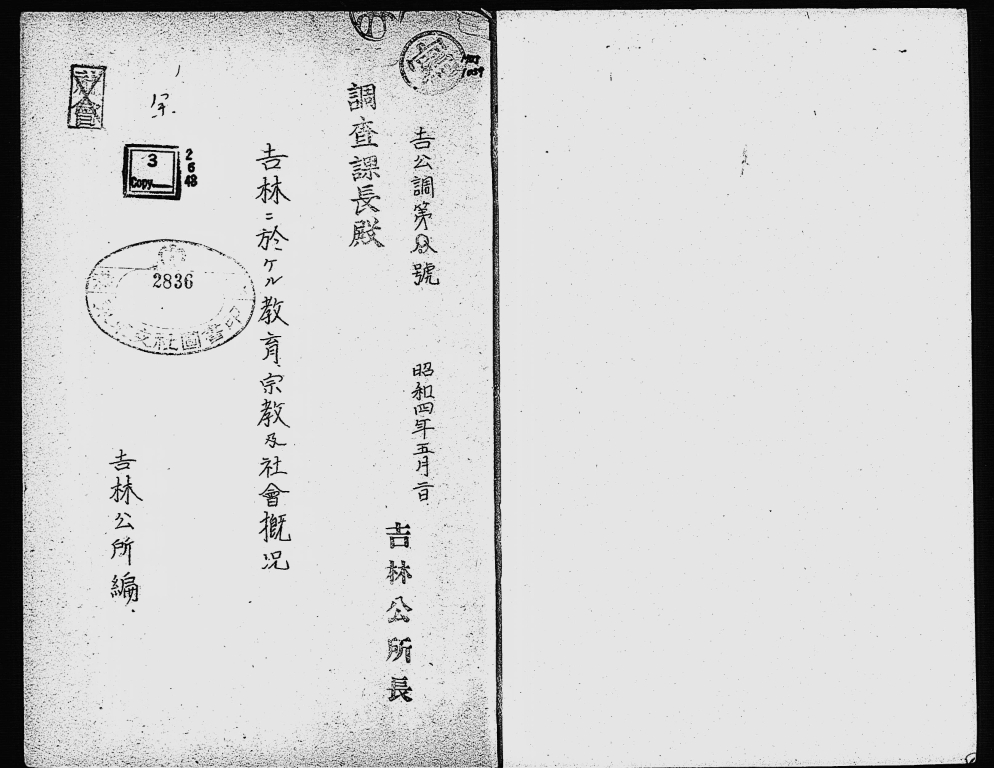 吉公調第八號
昭和四年五月二日
吉林公所長
調査課長殿
吉林ニ於ケル教育宗教及社會概況
吉林公所編
社會
3
Copy
2
6
43
2836
支社圖書印